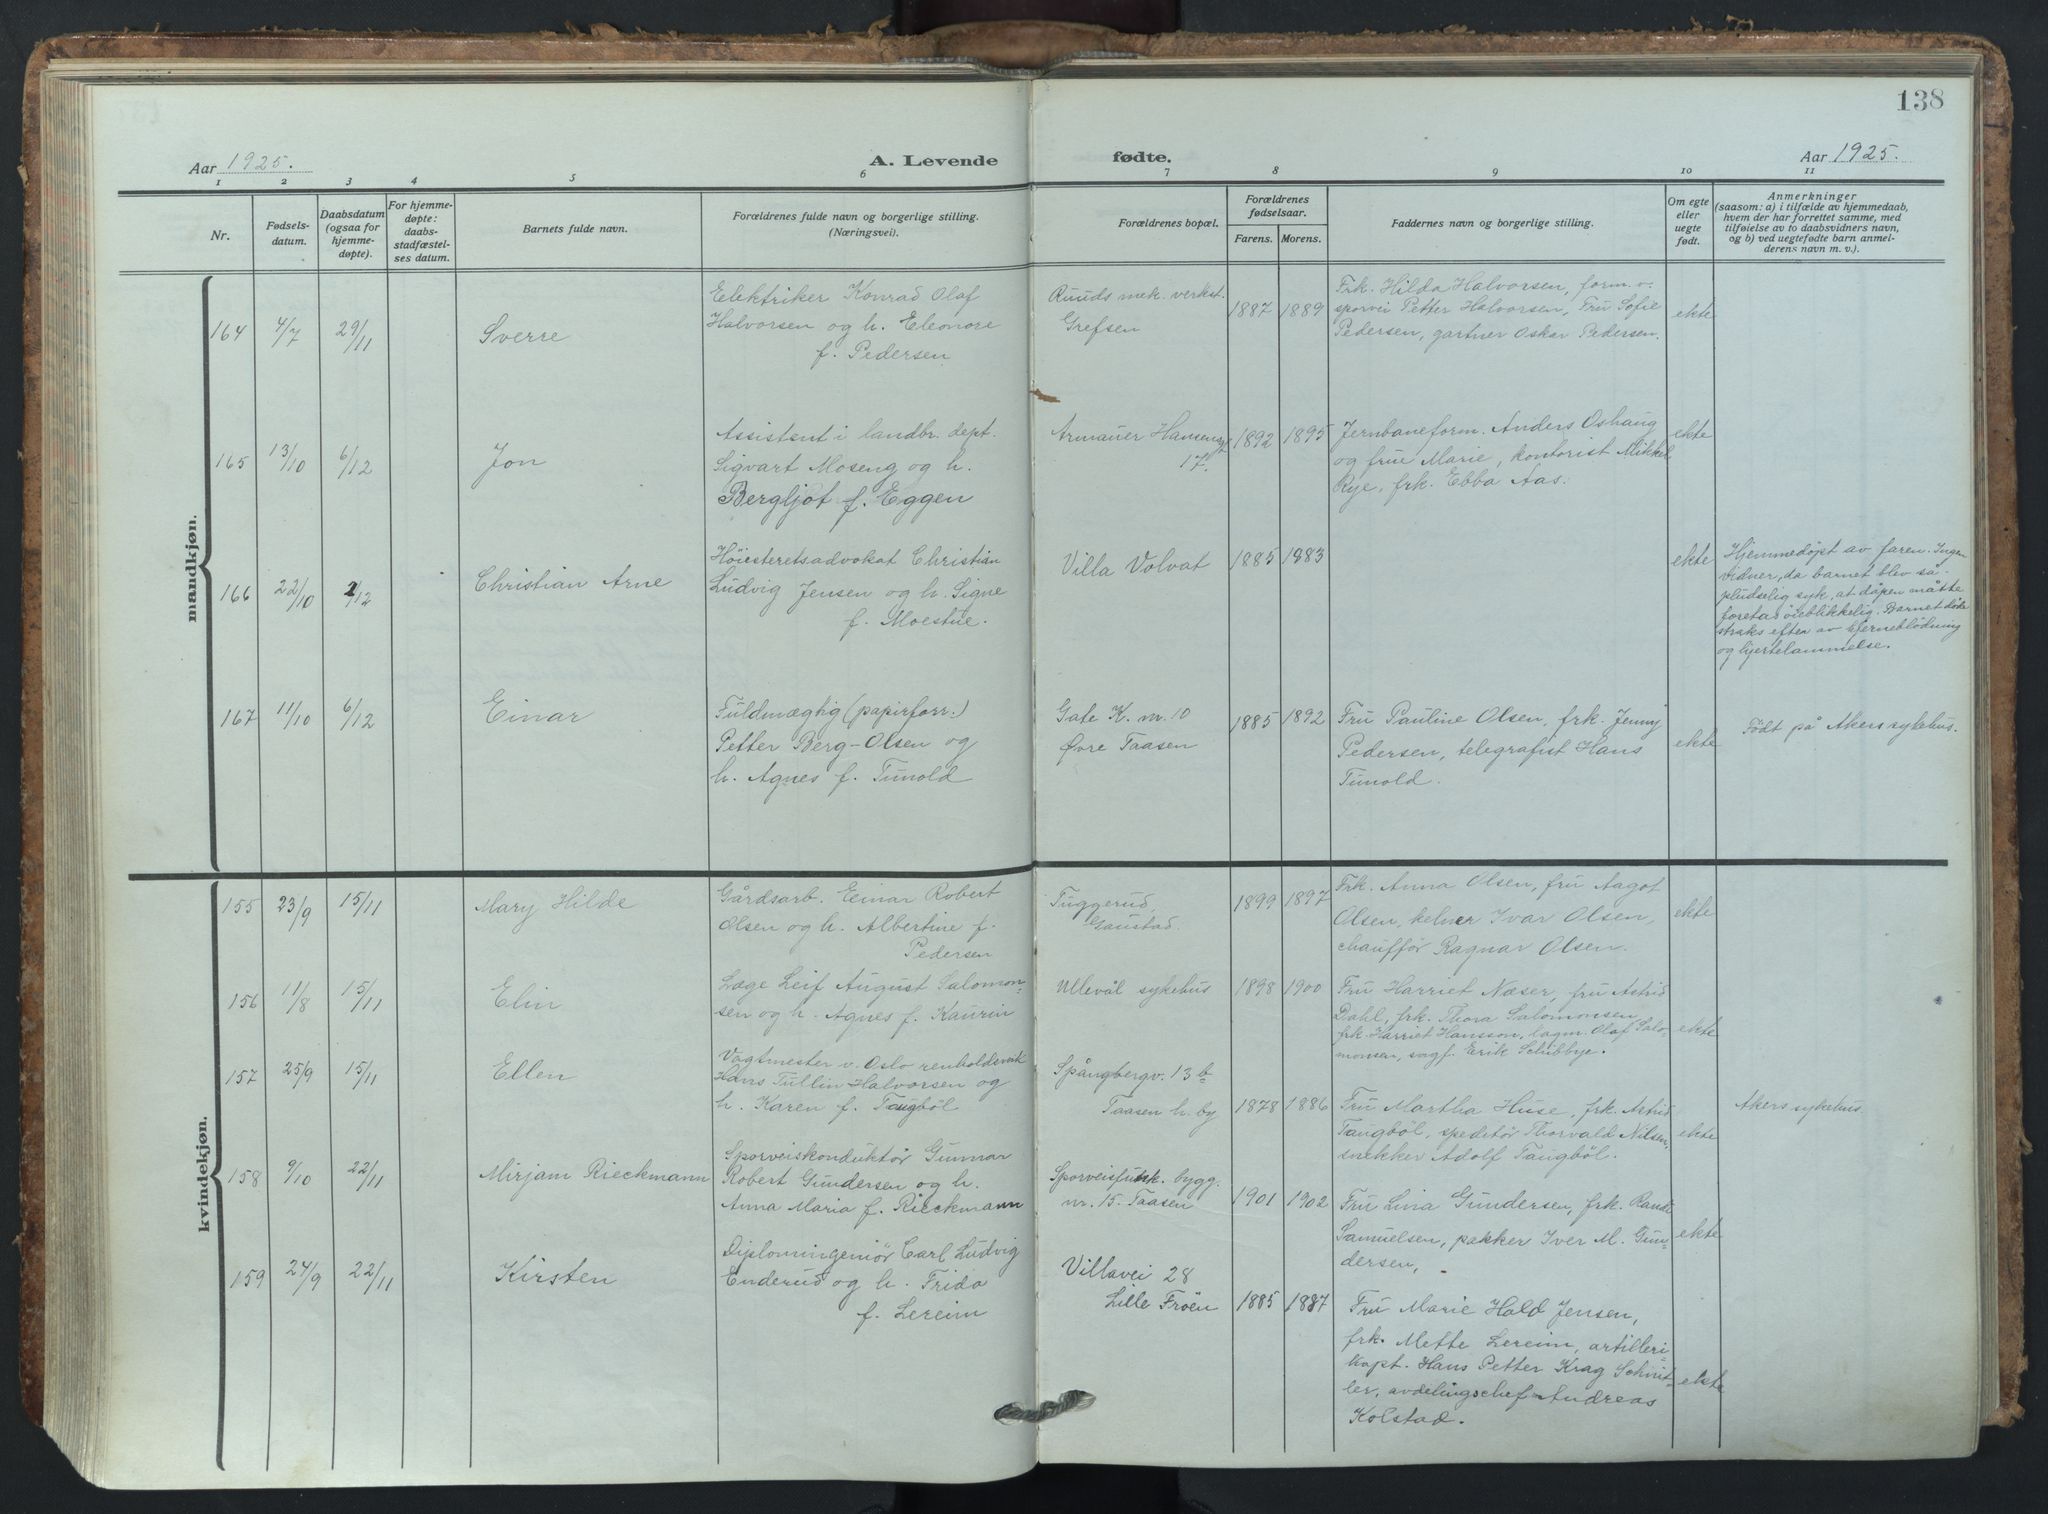 138
Aar 1925.
A. Levende fødte.
Aar 1925.
1 2 3 4 5 6 7 8 9 10 11
Nr.
Fødsels-
datum.
Daabsdatum
(ogsaa for
hjemme-
døpte).
For hjemme-
døpte:
daabs-
stadfæstel-
ses datum.
Barnets fulde navn.
Forældrenes fulde navn og borgerlige stilling.
(Næringsvei).
Forældrenes bopæl.
Forældrenes
fødselsaar.
Farens. Morens.
Faddernes navn og borgerlige stilling.
Om egte
eller
uegte
født.
Anmerkninger
(saasom: a) i tilfælde av hjemmedaab,
hvem der har forrettet samme, med
tilføielse av to daabsvidners navn,
og b) ved uegtefødte barn anmel-
derens navn m. v.).
mandkjøn.
164 4/7 29/11 Sverre
Elektriker Konrad Olaf
Halvorsen og h. Eleonore
f. Pedersen
Ruuds mek. verkst.
Grefsen
1887 1889
Frk. Hilda Halvorsen, form. v.
sporvei Petter Halvorsen, Fru Sofie
Pedersen, gartner Oskar Pedersen.
ekte
165 13/10 6/12 Jon
Assistent i landbr. dept.
Sigvart Moseng og h.
Bergljot f. Eggen
Armauer Hansensgt
17.
1892 1895
Jernbaneform. Anders Oshaug
og frue Marie, kontorist Mikkel
Rye, frk. Ebba Aas.
ekte
166 22/10 /12 Christian Arne
Höiesteretsadvokat Christian
Ludvig Jensen og h. Signe
f. Moestue.
Villa Volvat
1885 1883
ekte
Hjemmedøpt av faren. Ingen
vidner, da barnet blev så
pludselig syk, at dåpen måtte
foretas öieblikkelig. Barnet döde
straks efter av hjerneblödning
og hjertelammelse.
167 11/10 6/12 Einar
Fuldmægtig (papirforr.)
Petter Berg-Olsen og
h. Agnes f. Tunold
Gate K. nr. 10
Øvre Taasen
1885 1892
Fru Pauline Olsen, frk. Jenny
Pedersen, telegrafist Hans
Tunold.
ekte
Födt på Akers sykehus.
kvindekjøn.
155 23/9 15/11 Mary Hilde
Gårdsarb. Einar Robert
Olsen og h. Albertine f.
Pedersen
Tuggerud,
Gaustad.
1899 1897
Frk. Anna Olsen, fru Aagot
Olsen, kelner Ivar Olsen,
chaufför Ragnar Olsen.
ekte
156 11/8 15/11 Elin
Læge Leif August Salomon-
sen og h. Agnes f. Kaurin
Ullevål sykehus
1898 1900
Fru Harriet Næser, fru Astrid
Dahl, frk. Thora Salomonsen,
frk. Harriet Hansson, lagm. Olaf Salo-
monsen, sagf. Erik Schibbye.
ekte
157 25/9 15/11 Ellen
Vagtmester v. Oslo renholdsverk
Hans Tullin Halvorsen og
h. Karen f. Taugböl
Spångbergv. 13 b
Taasen h. by
1878 1886
Fru Martha Huse, frk. Astrid
Taugböl, speditör Thorvald Nilsen,
snekker Adolf Taugböl.
ekte
Akers sykehus.
158 9/10 22/11 Mirjam Rieckmann
Sporveiskonduktör Gunnar
Robert Gundersen og h.
Anna Maria f. Rieckmann
Sporveisfunk. bygg.
nr. 15. Taasen
1901 1902
Fru Lina Gundersen, frk. Randi
Samuelsen, pakker Iver M. Gun-
dersen,
ekte
159 24/9 22/11 Kirsten
Diplomingeniör Carl Ludvig
Enderud og h. Frida
f. Lereim
Villavei 28
Lille Fröen
1885 1887
Fru Marie Hald Jensen,
frk. Mette Lereim, artilleri-
kapt. Hans Petter Krag Schnit-
ler, avdelingschef Andreas
Kolstad.
ekte